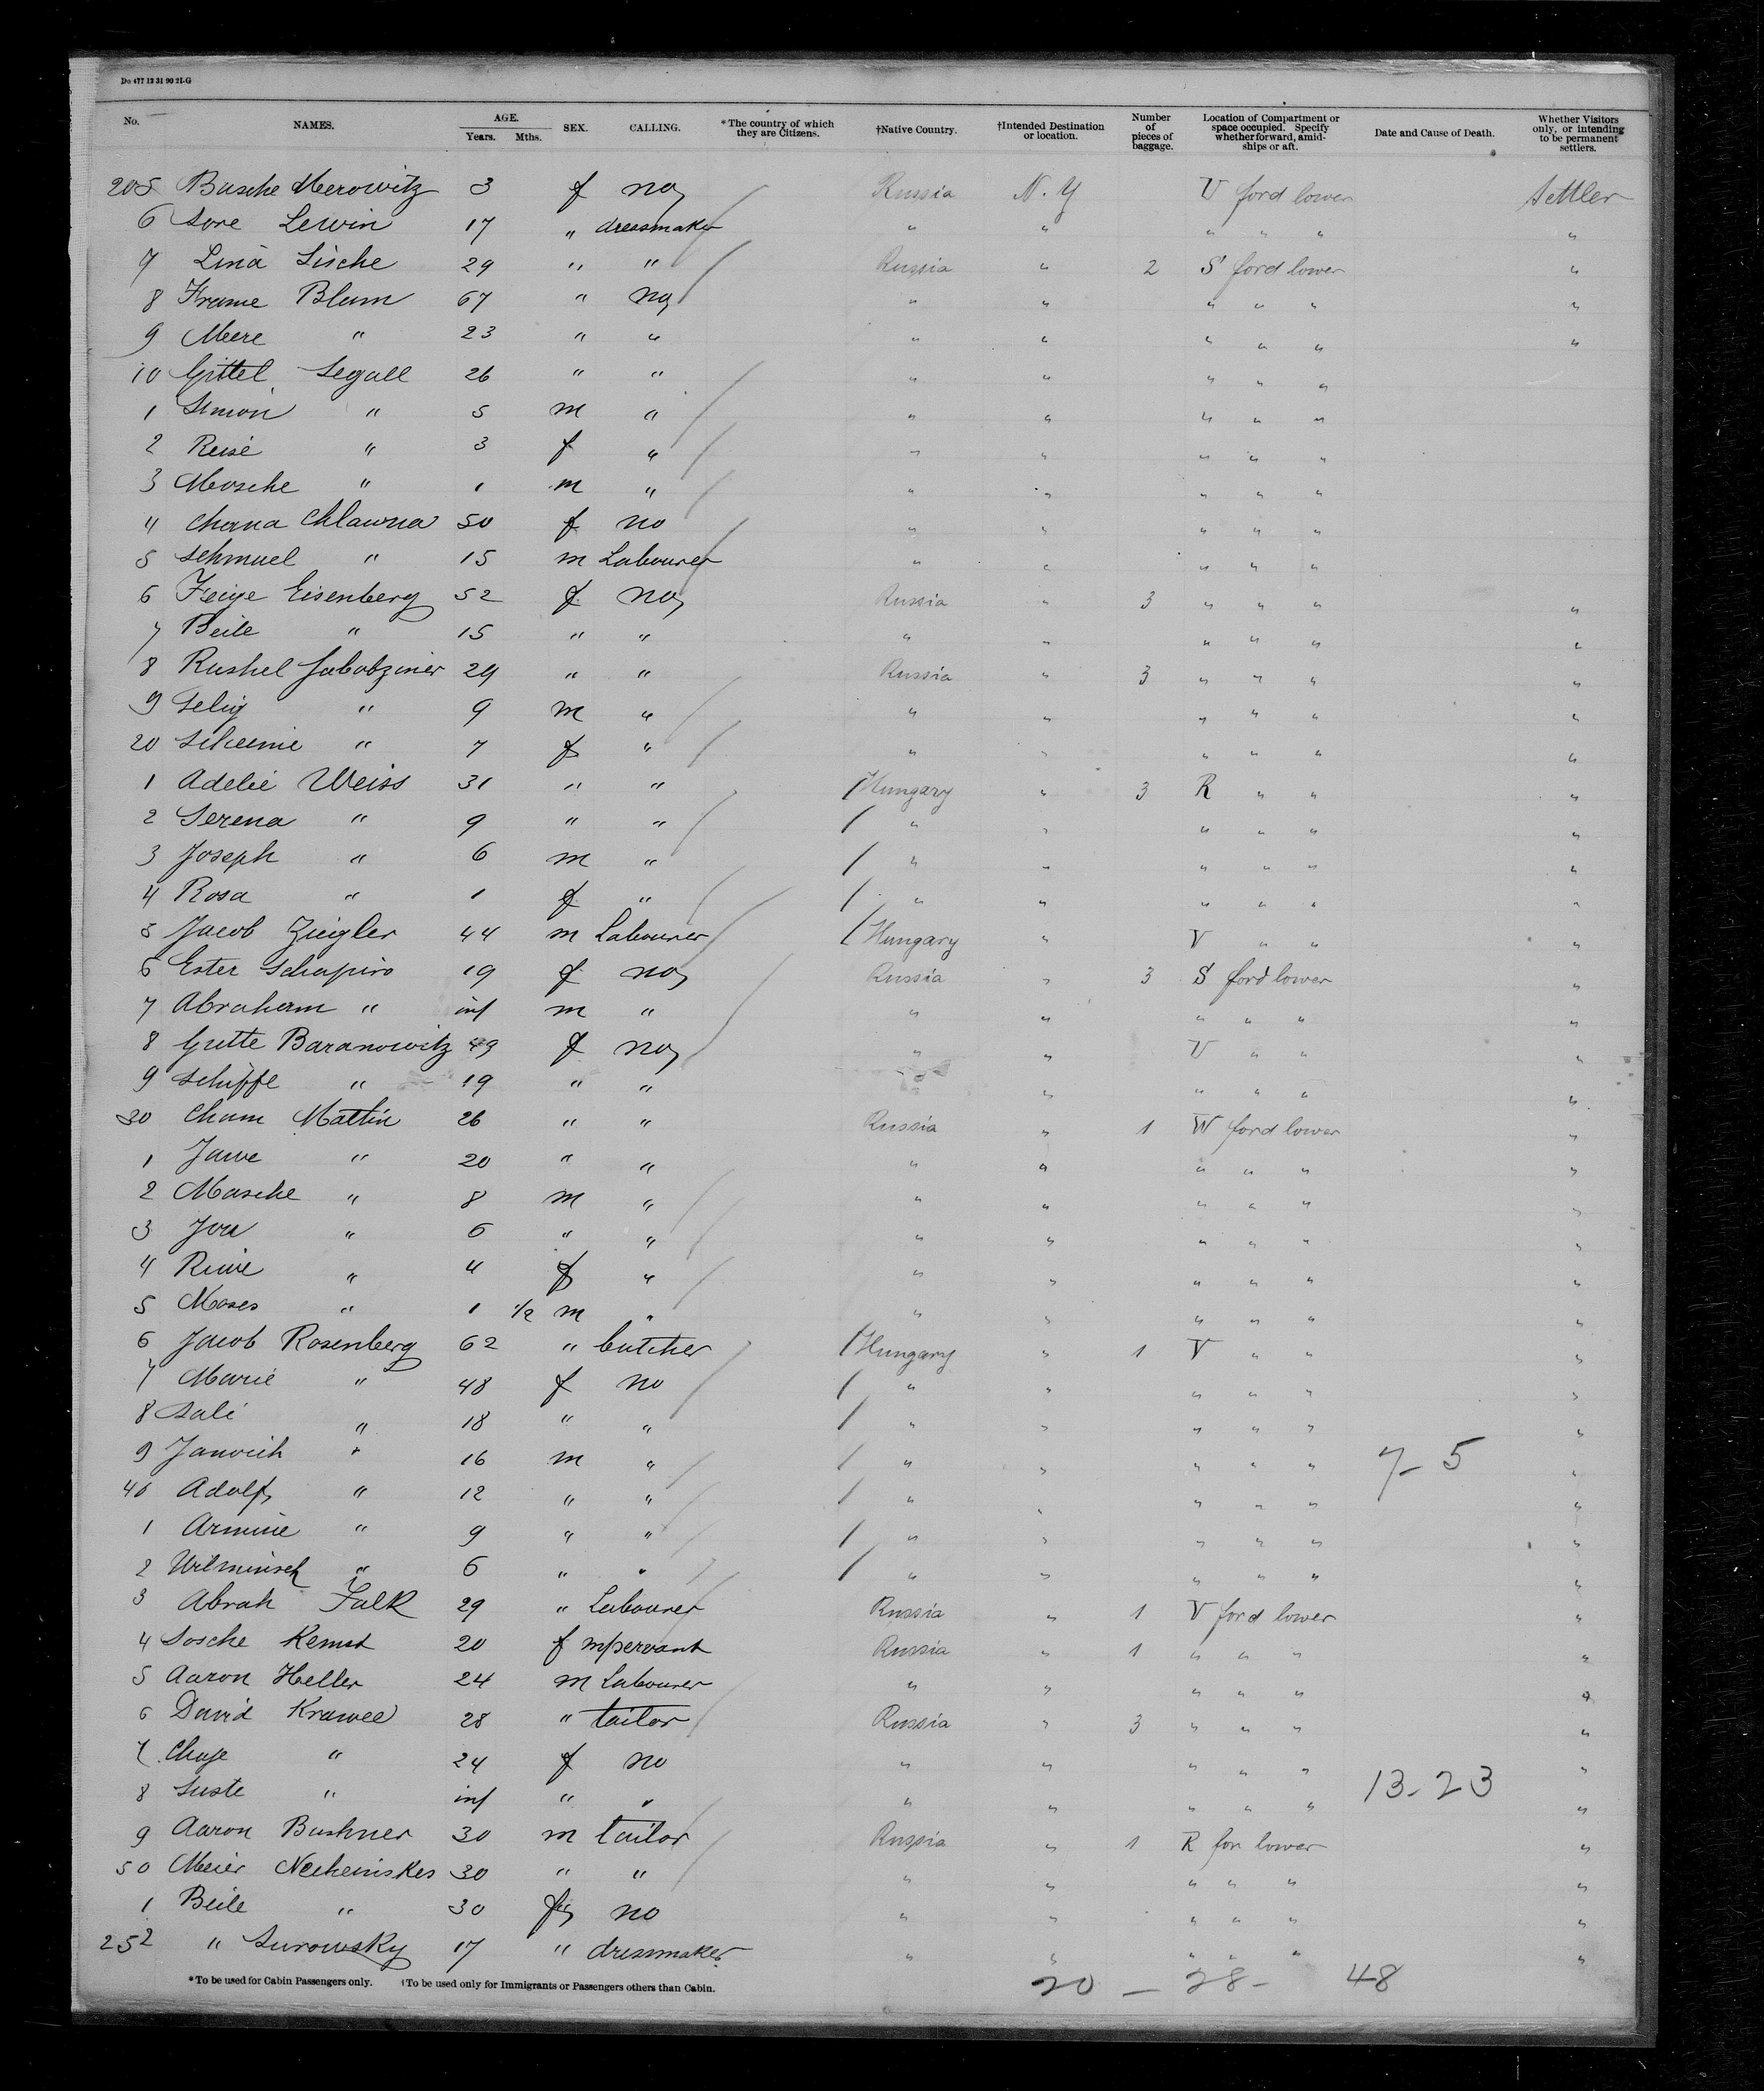 Do 477 12 31 90 21-G
No. NAMES. AGE. Years. Mths. SEX. CALLING. *The country of which they are Citizens. †Native Country. †Intended Destination or location. Number of pieces of baggage. Location of Compartment or space occupied. Specify whether forward, amidships or aft. Date and Cause of Death. Whether Visitors only, or intending to be permanent settlers.
205 Basche Merowitz 3 f no Russia N. Y U ford lower Settler
6 Sore Lewin 17 " dressmaker " " " " " "
7 Lina Lische 29 " " Russia " 2 S ford lower "
8 Frume Blum 67 " no " " " " " "
9 Mere " 23 " " " " " " " "
10 Gittel Segall 26 " " " " " " "
1 Simon " 5 m " " " " " "
2 Reise " 3 f " " " " " "
3 Mosche " 1 m " " " " " "
4 Chana Chlawna 50 f no " " " " "
5 Schmuel " 15 m Labourer " " " " "
6 Feige Eisenberg 52 f no Russia " 3 " " " "
7 Beile " 15 " " " " " " " "
8 Rushel Jabotziner 29 " " Russia " 3 " " " "
9 Selig " 9 m " " " " " " "
20 " 7 f " " " " " " "
1 Adelie Weiss 31 " " Hungary " 3 R " " "
2 Serena " 9 " " " " " " " "
3 Joseph " 6 m " " " " " " "
4 Rosa " 1 f " " " " " " "
5 Jacob Ziegler 44 m Labourer Hungary " V " " "
6 Ester Schapiro 19 f no Russia " 3 S ford lower "
7 Abraham " inf m " " " " " " "
8 Gutte Baranowitz 49 f no " " U " " "
9 Schiffe " 19 " " " " " " " "
30 Cham Mattin 26 " " Russia " 1 W ford lower "
1 Jawe " 20 " " " " " " " "
2 Masche " 8 m " " " " " " "
3 " 6 " " " " " " " "
4 Riwe " 4 f " " " " " " "
5 Moses " 1 1/2 m " " " " " " "
6 Jacob Rosenberg 62 " butcher Hungary " 1 V " " "
7 Marie " 48 f no " " " " " "
8 Sali " 18 " " " " " " " "
9 " 16 m " " " " " " 7-5 "
40 Adolf " 12 " " " " " " " "
1 Armine " 9 " " " " " " " "
2 " 6 " " " " " " " "
3 Abrah Falk 29 " Labourer Russia " 1 V ford lower "
4 Sosche 20 f servant Russia " 1 " " " "
5 Aaron Heller 24 m Labourer " " " " " "
6 David Krawee 28 " tailor Russia " 3 " " " "
7 Chaje " 24 f no " " " " " "
8 Suste " inf " " " " " " " 13-23 "
9 Aaron Bushner 30 m tailor Russia " 1 R for lower "
50 Meier Necheniskes 30 " " " " " " " "
1 Beile " 30 f no " " " " " "
252 " Surowsky 17 " dressmaker " " " " " "
*To be used for Cabin Passengers only. †To be used only for Immigrants or Passengers others than Cabin.
20 - 28 - 48